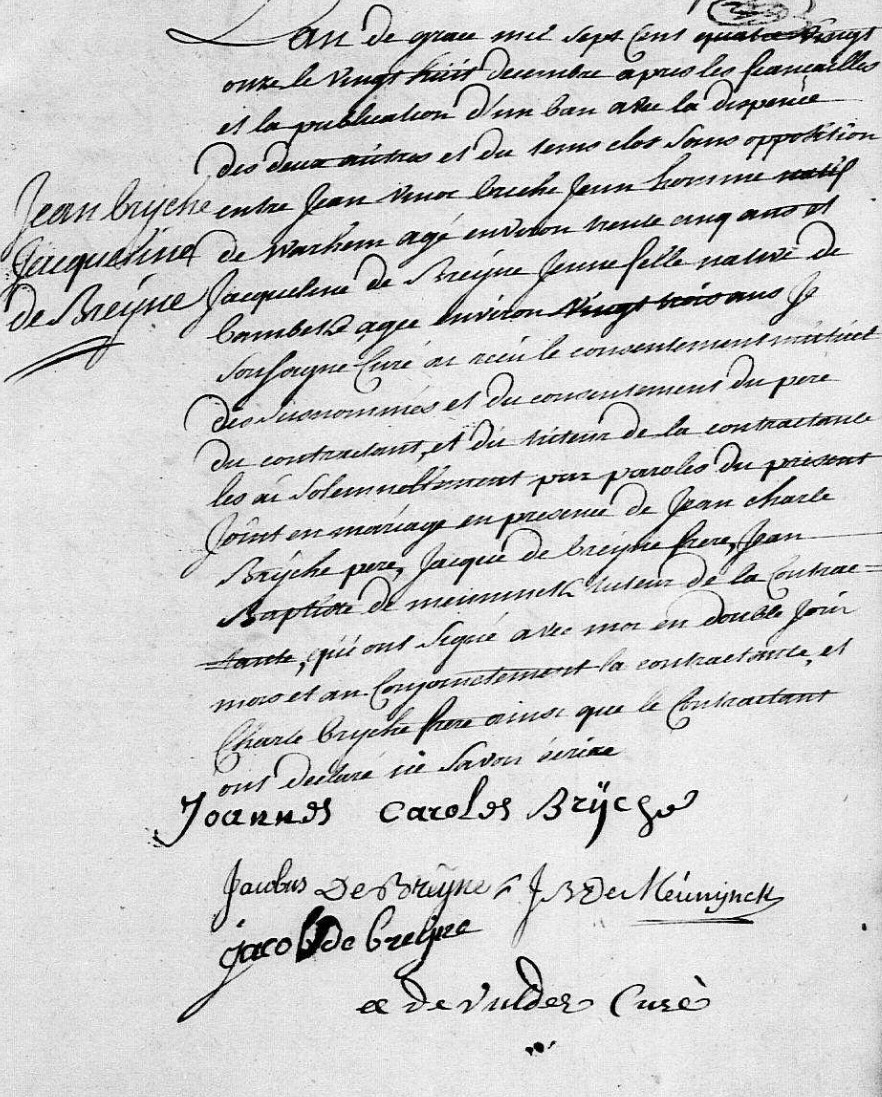 Lan de grace mil sept Cent quatre Vingt
onze le vingt huit decembre apres les fiancailles
et la publication d'un ban avec la dispence
des deux autres et du tems clos sans opposition
Jean brÿche
Jacqueline
de Breÿne
entre Jean vinoc briche Jeun homme natif
de warhem agé environ trente cinq ans et
Jacqueline de Breÿne Jeune felle native de
agee environ vingt trois ans Je
Soussigne Curé ai recu le consentement mutuel
des susnommés et du consentement du pere
du contractant, et du tuteur de la contractante
les ai Solemnellement par paroles du present
Joint en mariage en presence de Jean charle
Brÿche pere, Jacque de breÿne frere, Jean
Baptiste de meuninck tuteur de la Contrac=
tante, qui ont signé avec moi en double Jour
mois et an Conjointement la contractante, et
Charle brÿche frere ainsi que le Contractant
ont declaré ne savoir ecrire
Joannes Caroles Brÿche
Jacobus De Breÿne J B De Meünÿnck
jacob de breijne
de Vulder Curè